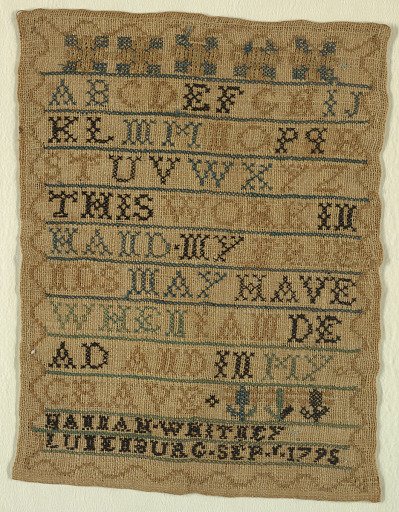 A B C D E F G H I J
K L M M N O P Q R
S T U V W X Y Z
THIS WORK IN
HAND·MY FRIE
NDS MAY HAVE
WHEN I AM DE
AD AND IN MY
GRAVE
HANNAH·WHITNEY
LUNENBURG·SEP·r·1795